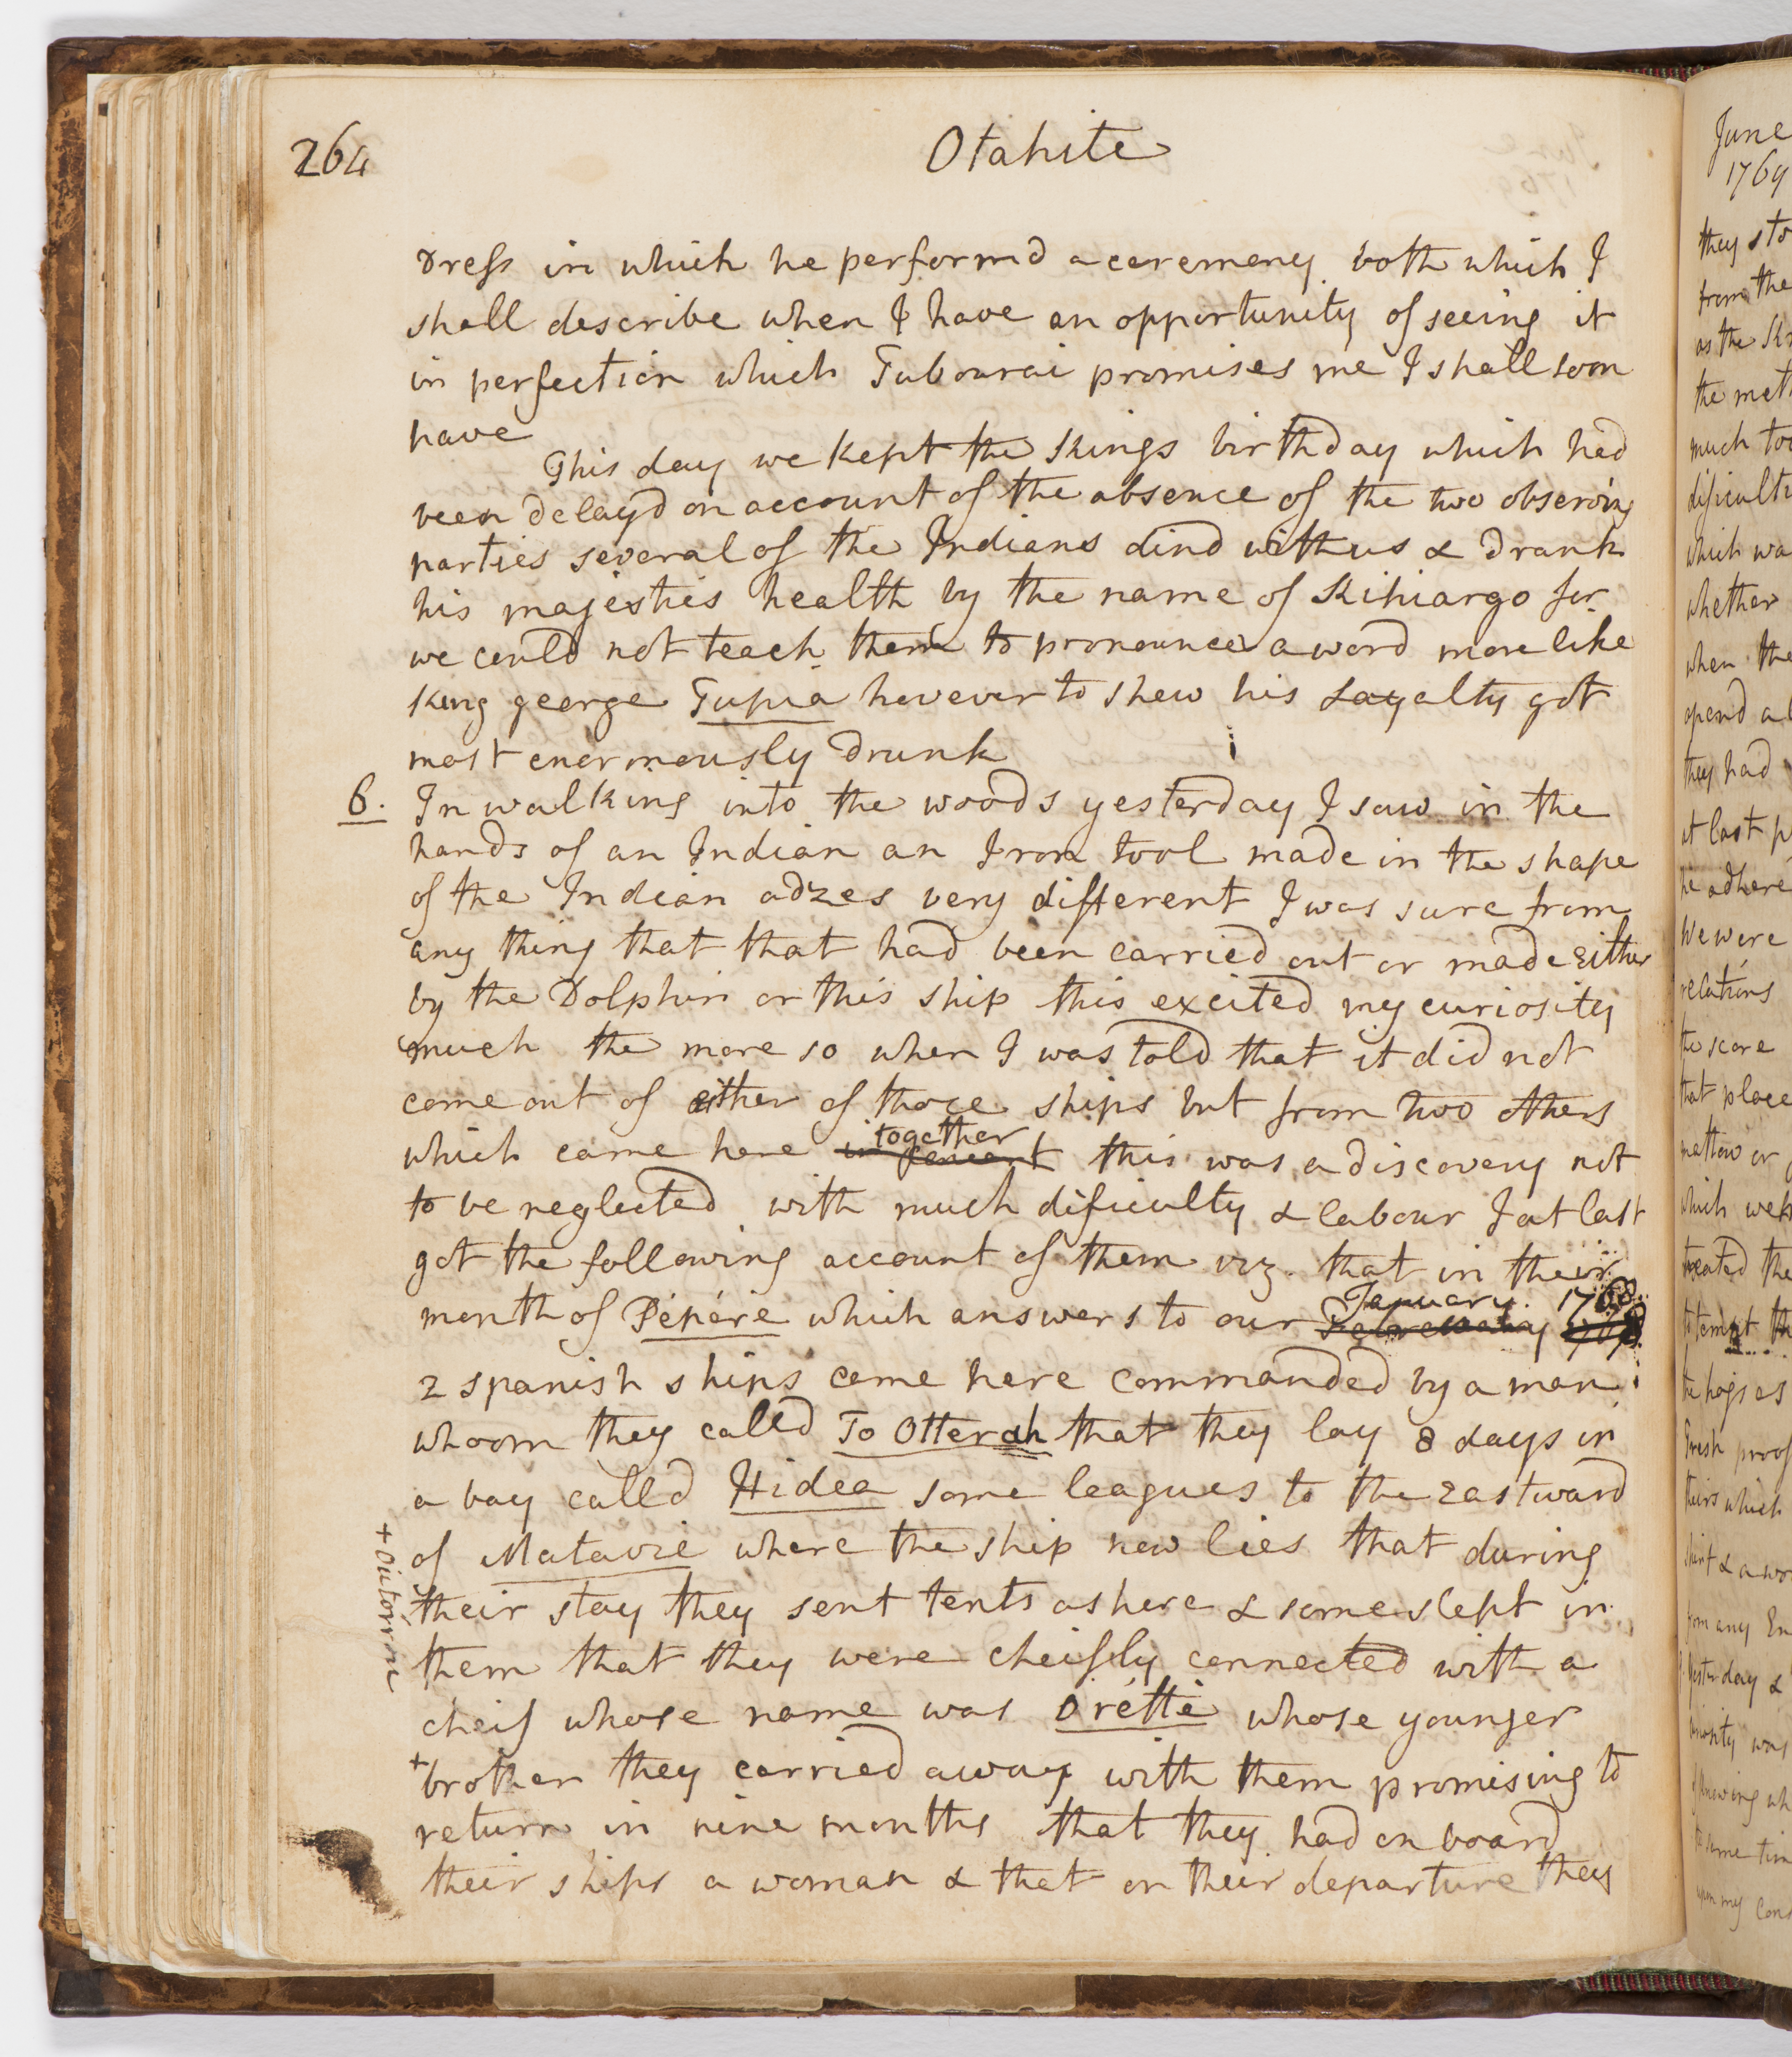 264
Otahite
dress in which he performd a ceremony both which I
shall describe when I have an opportunity of seeing it
in perfection which Tubourai promises me I shall soon
have
This day we kept the Kings birthday which had
been delayd on account of the absence of the two observing
parties several of the Indians dind with us & drank
his majesties health by the name of Kihiargo for
we could not teach them to pronounce a word more like
King george Tupia however to shew his Loyalty got
most enormously drunk
6. In walking into the woods yesterday I saw in the
hands of an Indian an Iron tool made in the shape
of the Indian adzes very different I was sure from
any thing that that had been carried out or made either
by the Dolphin or this ship this excited my curiosity
much the more so when I was told that it did not
come out of either of those ships but from two others
together
which came here this was a discovery not
to be neglected with much dificulty & labour I at last
got the following account of them viz. that in their
January. 1768
month of Pépére which answers to our
2 spanish ships came here commanded by a man
whoom they calld To Otterah that they lay 8 days in
a bay calld Hidea some leagues to the eastward
of Matavie where the ship now lies that during
their stay they sent tents ashore & some slept in
them that they were cheifly connected with a
cheif whose name was Oréttè whose younger
+brother they carried away with them promising to
return in nine months that they had on board
their ships a woman & that on their departure they
June
1769
they sto
from the
as the
the met
much too
dificult
which wa
whether
when the
opend a
they had
at last p
he adhere
We were
relations
the score
that place
which were
treated the
to tempt th
the hogs es
Fresh proof
theirs which
shirt & a wo
from any En
yesterday &